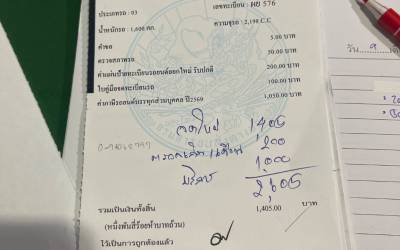 ประเภทรถ : 03 เลขทะเบียน : HD 576
น้ำหนักรถ : 1,600 กก. ความจุรถ : 2,198 C.C
ค่าขอ 5.00 บาท
ตรวจสภาพรถ 50.00 บาท
ค่าแผ่นป้ายทะเบียนรถยนต์ออกใหม่ รับปกติ 200.00 บาท
ใบคู่มือจดทะเบียนรถ 100.00 บาท
ค่าภาษีรถยนต์บรรทุกส่วนบุคคล ปี2569 1,050.00 บาท
วัน 9
1405
200
บริการ 1,000
2,605
รวมเป็นเงินทั้งสิ้น 1,405.00 บาท
(หนึ่งพันสี่ร้อยห้าบาทถ้วน)
ไว้เป็นการถูกต้องแล้ว